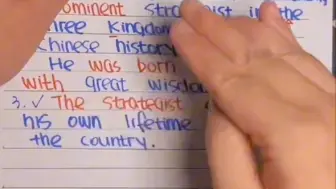 strategist in the
Three Kingdom
Chinese history
He was born
with great wisdo
3. ✓ The strategist
his own lifetime
the country.